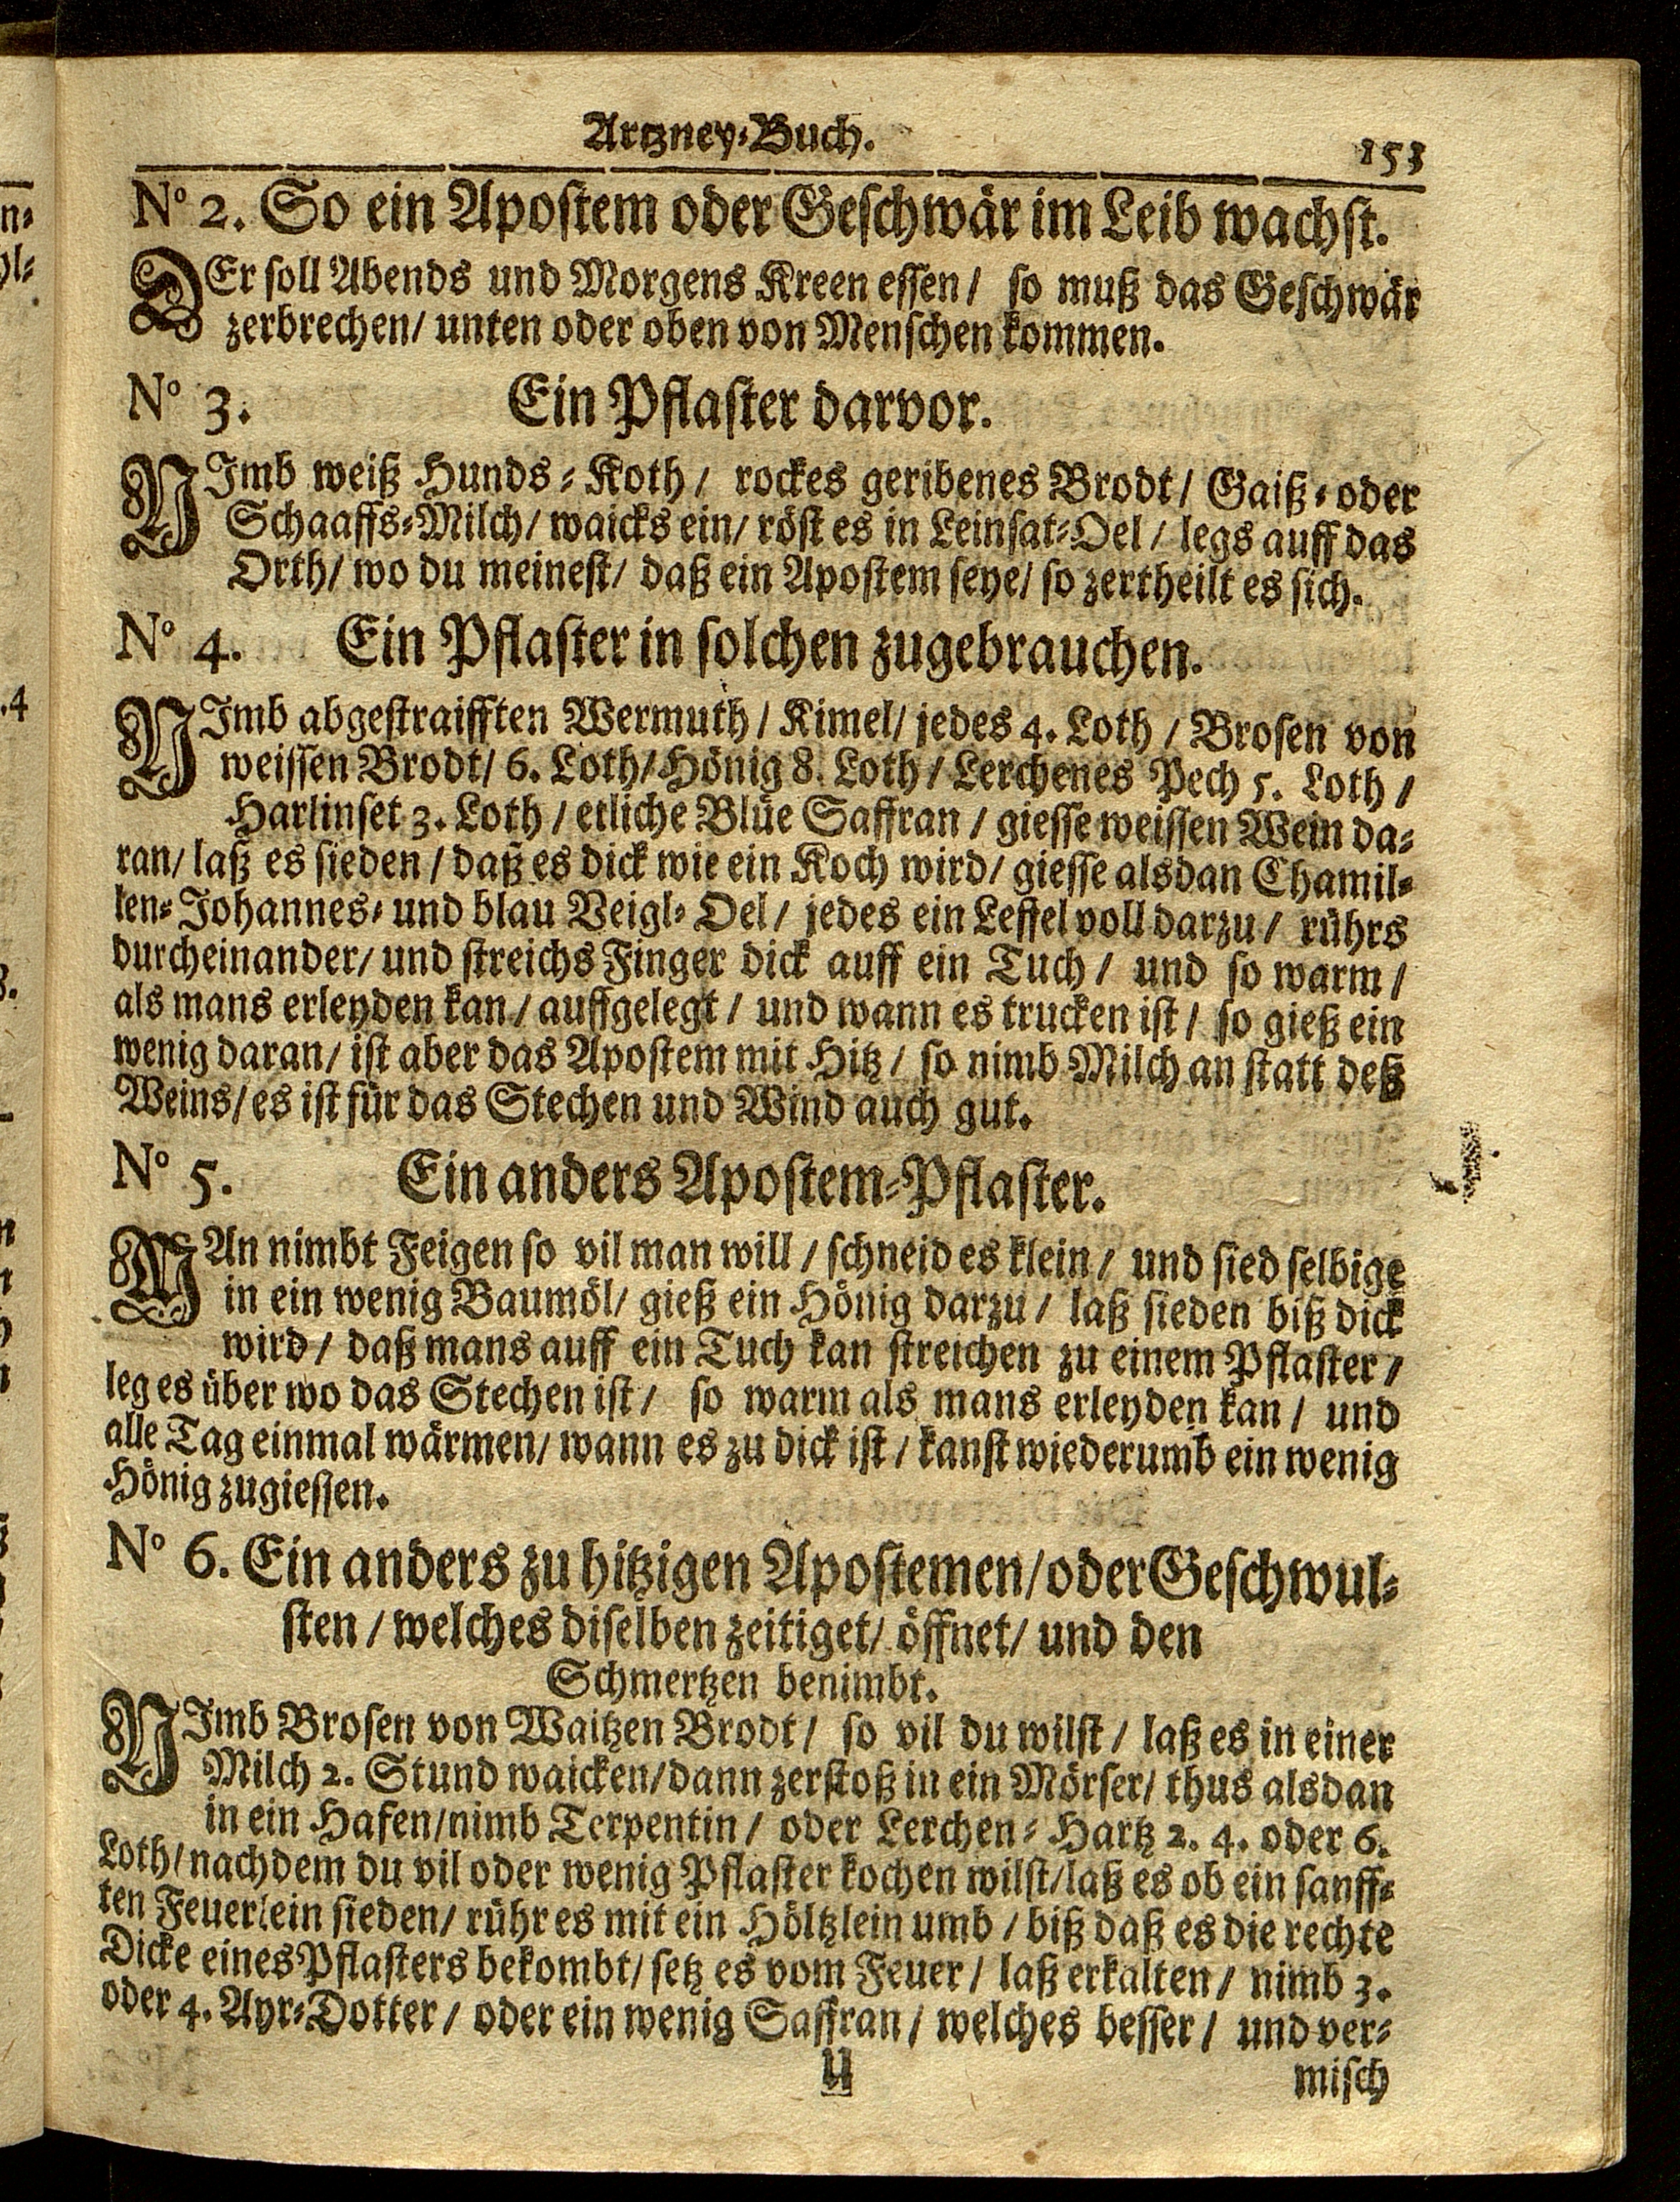 Artzney-Buch.
153
No 2. So ein Apostem oder Geschwär im Leib wachst.
DEr soll Abends und Morgens Kreen essen/ so muß das Geschwär
zerbrechen/ unten oder oben von Menschen kommen.
No 3. Ein Pflaster darvor.
NImb weiß Hunds-Koth/ rockes geribenes Brodt/ Gaiß- oder
Schaaffs-Milch/ waicks ein/ röst es in Leinsat-Oel/ legs auff das
Orth/ wo du meinest/ daß ein Apostem seye/ so zertheilt es sich.
No 4. Ein Pflaster in solchen zugebrauchen.
NImb abgestraifften Wermuth/ Kimel/ jedes 4. Loth/ Brosen von
weissen Brodt/ 6. Loth/ Hönig 8. Loth/ Lerchenes Pech 5. Loth/
Harlinset 3. Loth/ etliche Blüe Saffran/ giesse weissen Wein da-
ran/ laß es sieden/ daß es dick wie ein Koch wird/ giesse alsdan Chamil-
len- Johannes- und blau Veigl-Oel/ jedes ein Leffel voll darzu/ rührs
durcheinander/ und streichs Finger dick auff ein Tuch/ und so warm/
als mans erleyden kan/ auffgelegt/ und wann es trucken ist/ so gieß ein
wenig daran/ ist aber das Apostem mit Hitz/ so nimb Milch an statt deß
Weins/ es ist für das Stechen und Wind auch gut.
No 5. Ein anders Apostem-Pflaster.
MAn nimbt Feigen so vil man will/ schneid es klein/ und sied selbige
in ein wenig Baumöl/ gieß ein Hönig darzu/ laß sieden biß dick
wird/ daß mans auff ein Tuch kan streichen zu einem Pflaster/
leg es über wo das Stechen ist/ so warm als mans erleyden kan/ und
alle Tag einmal wärmen/ wann es zu dick ist/ kanst wiederumb ein wenig
Hönig zugiessen.
No 6. Ein anders zu hitzigen Apostemen/ oder Geschwul-
sten/ welches diselben zeitiget/ öffnet/ und den
Schmertzen benimbt.
NImb Brosen von Waitzen Brodt/ so vil du wilst/ laß es in einer
Milch 2. Stund waicken/ dann zerstoß in ein Mörser/ thus alsdan
in ein Hafen/ nimb Terpentin/ oder Lerchen-Hartz 2. 4. oder 6.
Loth/ nachdem du vil oder wenig Pflaster kochen wilst/ laß es ob ein sanff-
ten Feuerlein sieden/ rühr es mit ein Höltzlein umb/ biß daß es die rechte
Dicke eines Pflasters bekombt/ setz es vom Feuer/ laß erkalten/ nimb 3.
oder 4. Ayr-Dotter/ oder ein wenig Saffran/ welches besser/ und ver-
U
misch